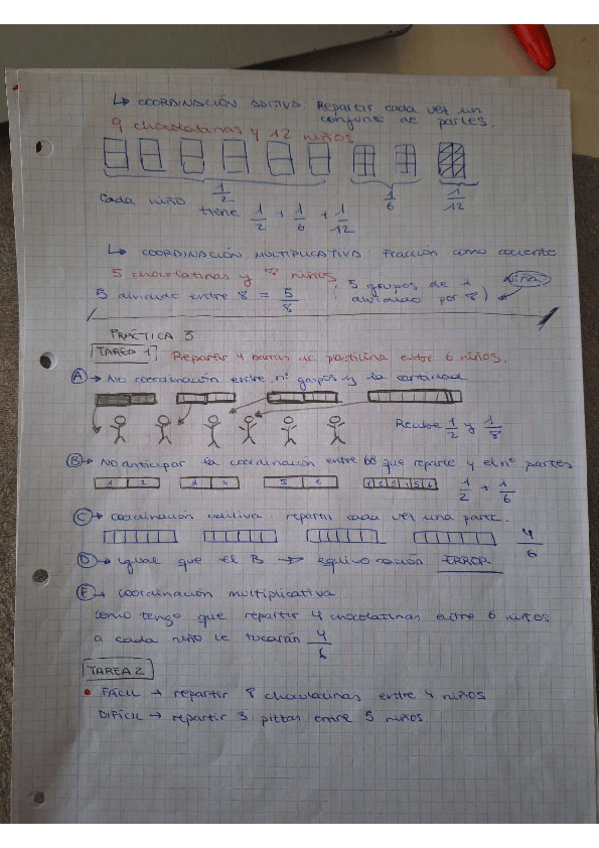 ↳ COORDINACIÓN ADITIVA: Repartir cada vez un
conjunto de partes.
9 chocolatinas y 12 niños
1/2 1/6 1/12
Cada niño tiene 1/2 + 1/6 + 1/12
↳ COORDINACIÓN MULTIPLICATIVA: Fracción como cociente
5 chocolatinas y 8 niños
5 dividido entre 8 = 5/8 (5 grupos de 1
dividido por 8) niña
PRÁCTICA 3
TAREA 1 Repartir 4 barras de plastilina entre 6 niños.
A → No coordinación entre nº grupos y la cantidad
Recibe 1/2 y 1/8
B → No anticipar la coordinación entre los que reparte y el nº partes
1 2 3 4 5 6 1 2 3 4 5 6 1/2 + 1/6
C → coordinación aditiva: repartir cada vez una parte.
4/6
D → igual que el B → equivocación ERROR
E → coordinación multiplicativa
como tengo que repartir 4 chocolatinas entre 6 niños
a cada niño le tocarán 4/6
TAREA 2
• FÁCIL → repartir 8 chocolatinas entre 4 niños
DIFÍCIL → repartir 3 pizzas entre 5 niños